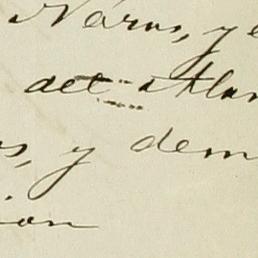 Naros, y e
del Alam
s, y dem
ion